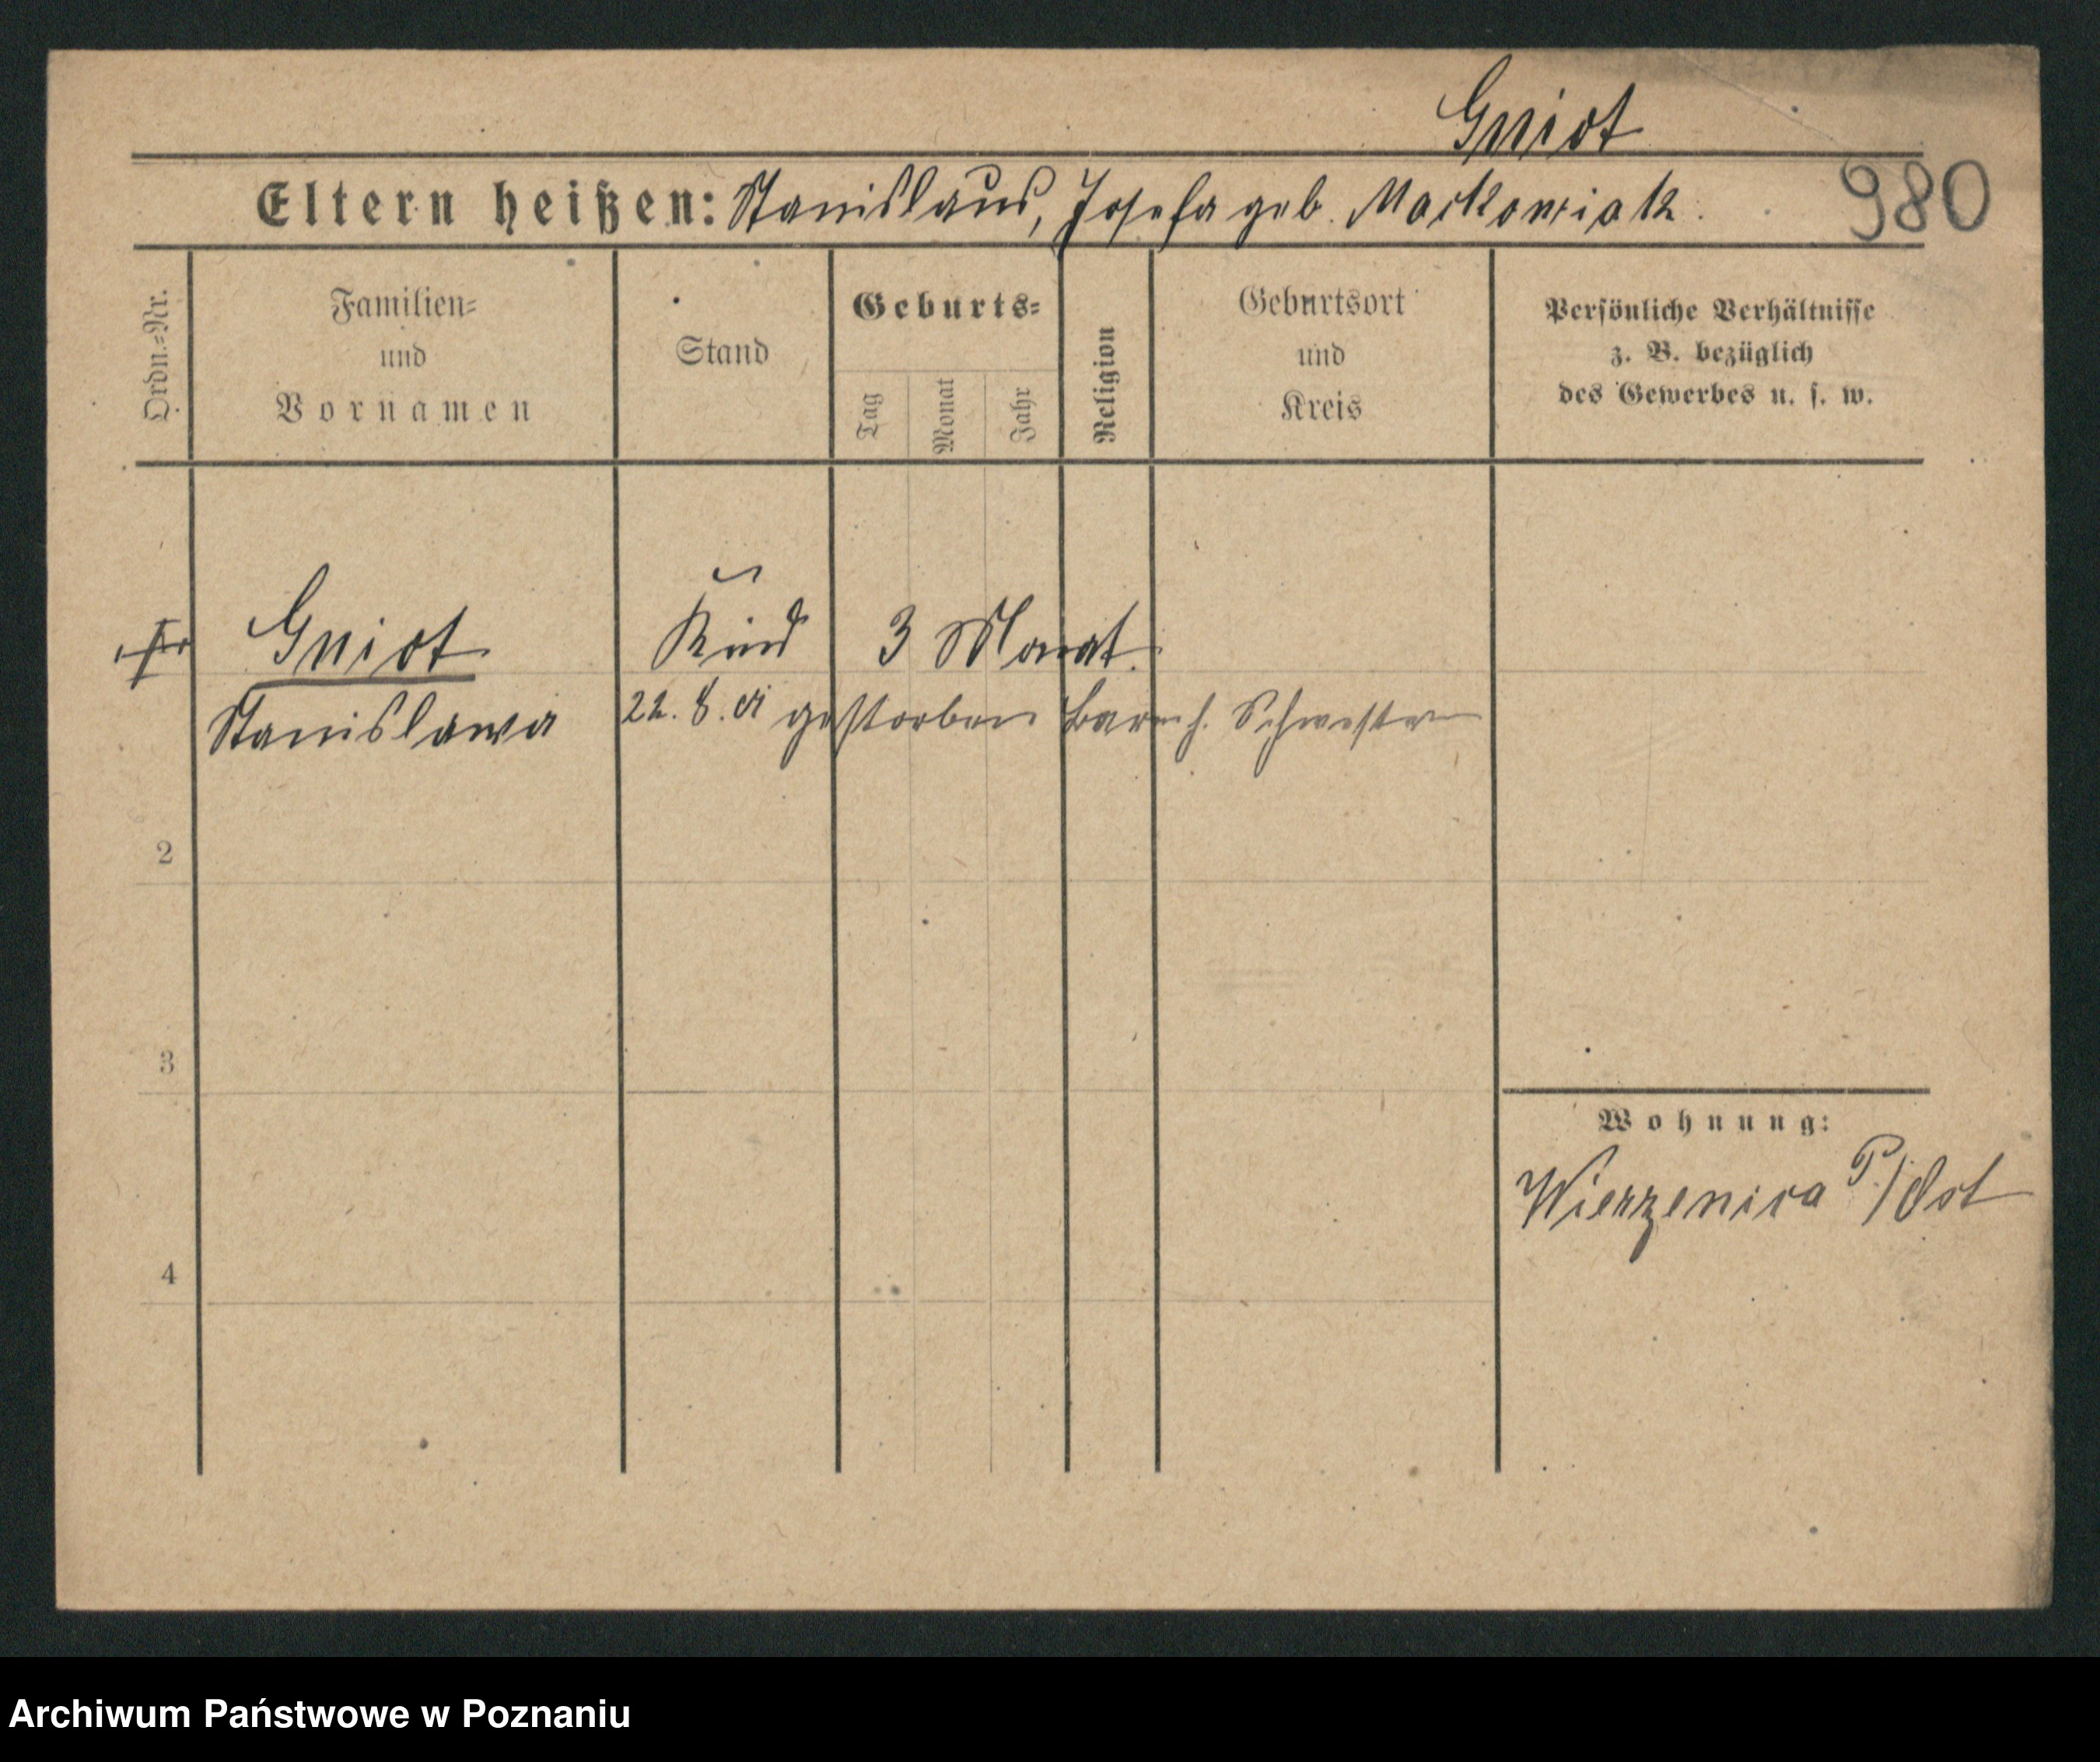 Gniot
Eltern heißen: Stanislaus, Josefa geb. Maćkowiak.
980
Ordn.=Nr.
Familien=
und
Vornamen
Stand
Geburts=
Tag
Monat
Jahr
Religion
Geburtsort
und
Kreis
Persönliche Verhältnisse
z. B. bezüglich
des Gewerbes u. s. w.
Gniot Kind 3 Monat.
Stanislawa 22. 8. gestorben barmh. Schwestern
2
3
4
Wohnung:
Wierzenica P/Ost
Archiwum Państwowe w Poznaniu